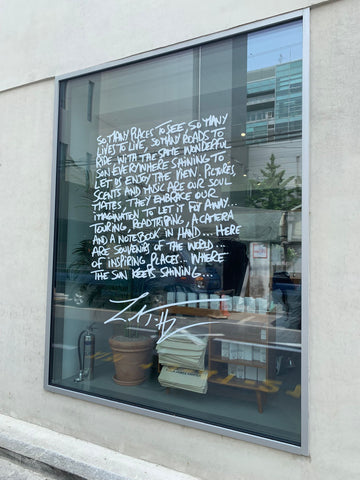 SO MANY PLACES TO SEE, SO MANY
LIVES TO LIVE, SO MANY ROADS TO
RIDE, WITH THE SAME WONDERFUL
SUN EVERYWHERE SHINING TO
LET US ENJOY THE VIEW. PICTURES,
SCENTS AND MUSIC ARE OUR SOUL
MATES, THEY EMBRACE OUR
IMAGINATION TO LET IT FLY AWAY...
TOURING, ROADTRIPPING, A CAMERA
AND A NOTEBOOK IN HAND... HERE
ARE SOUVENIRS OF THE WORLD...
OF INSPIRING PLACES... WHERE
THE SUN KEEPS SHINING...